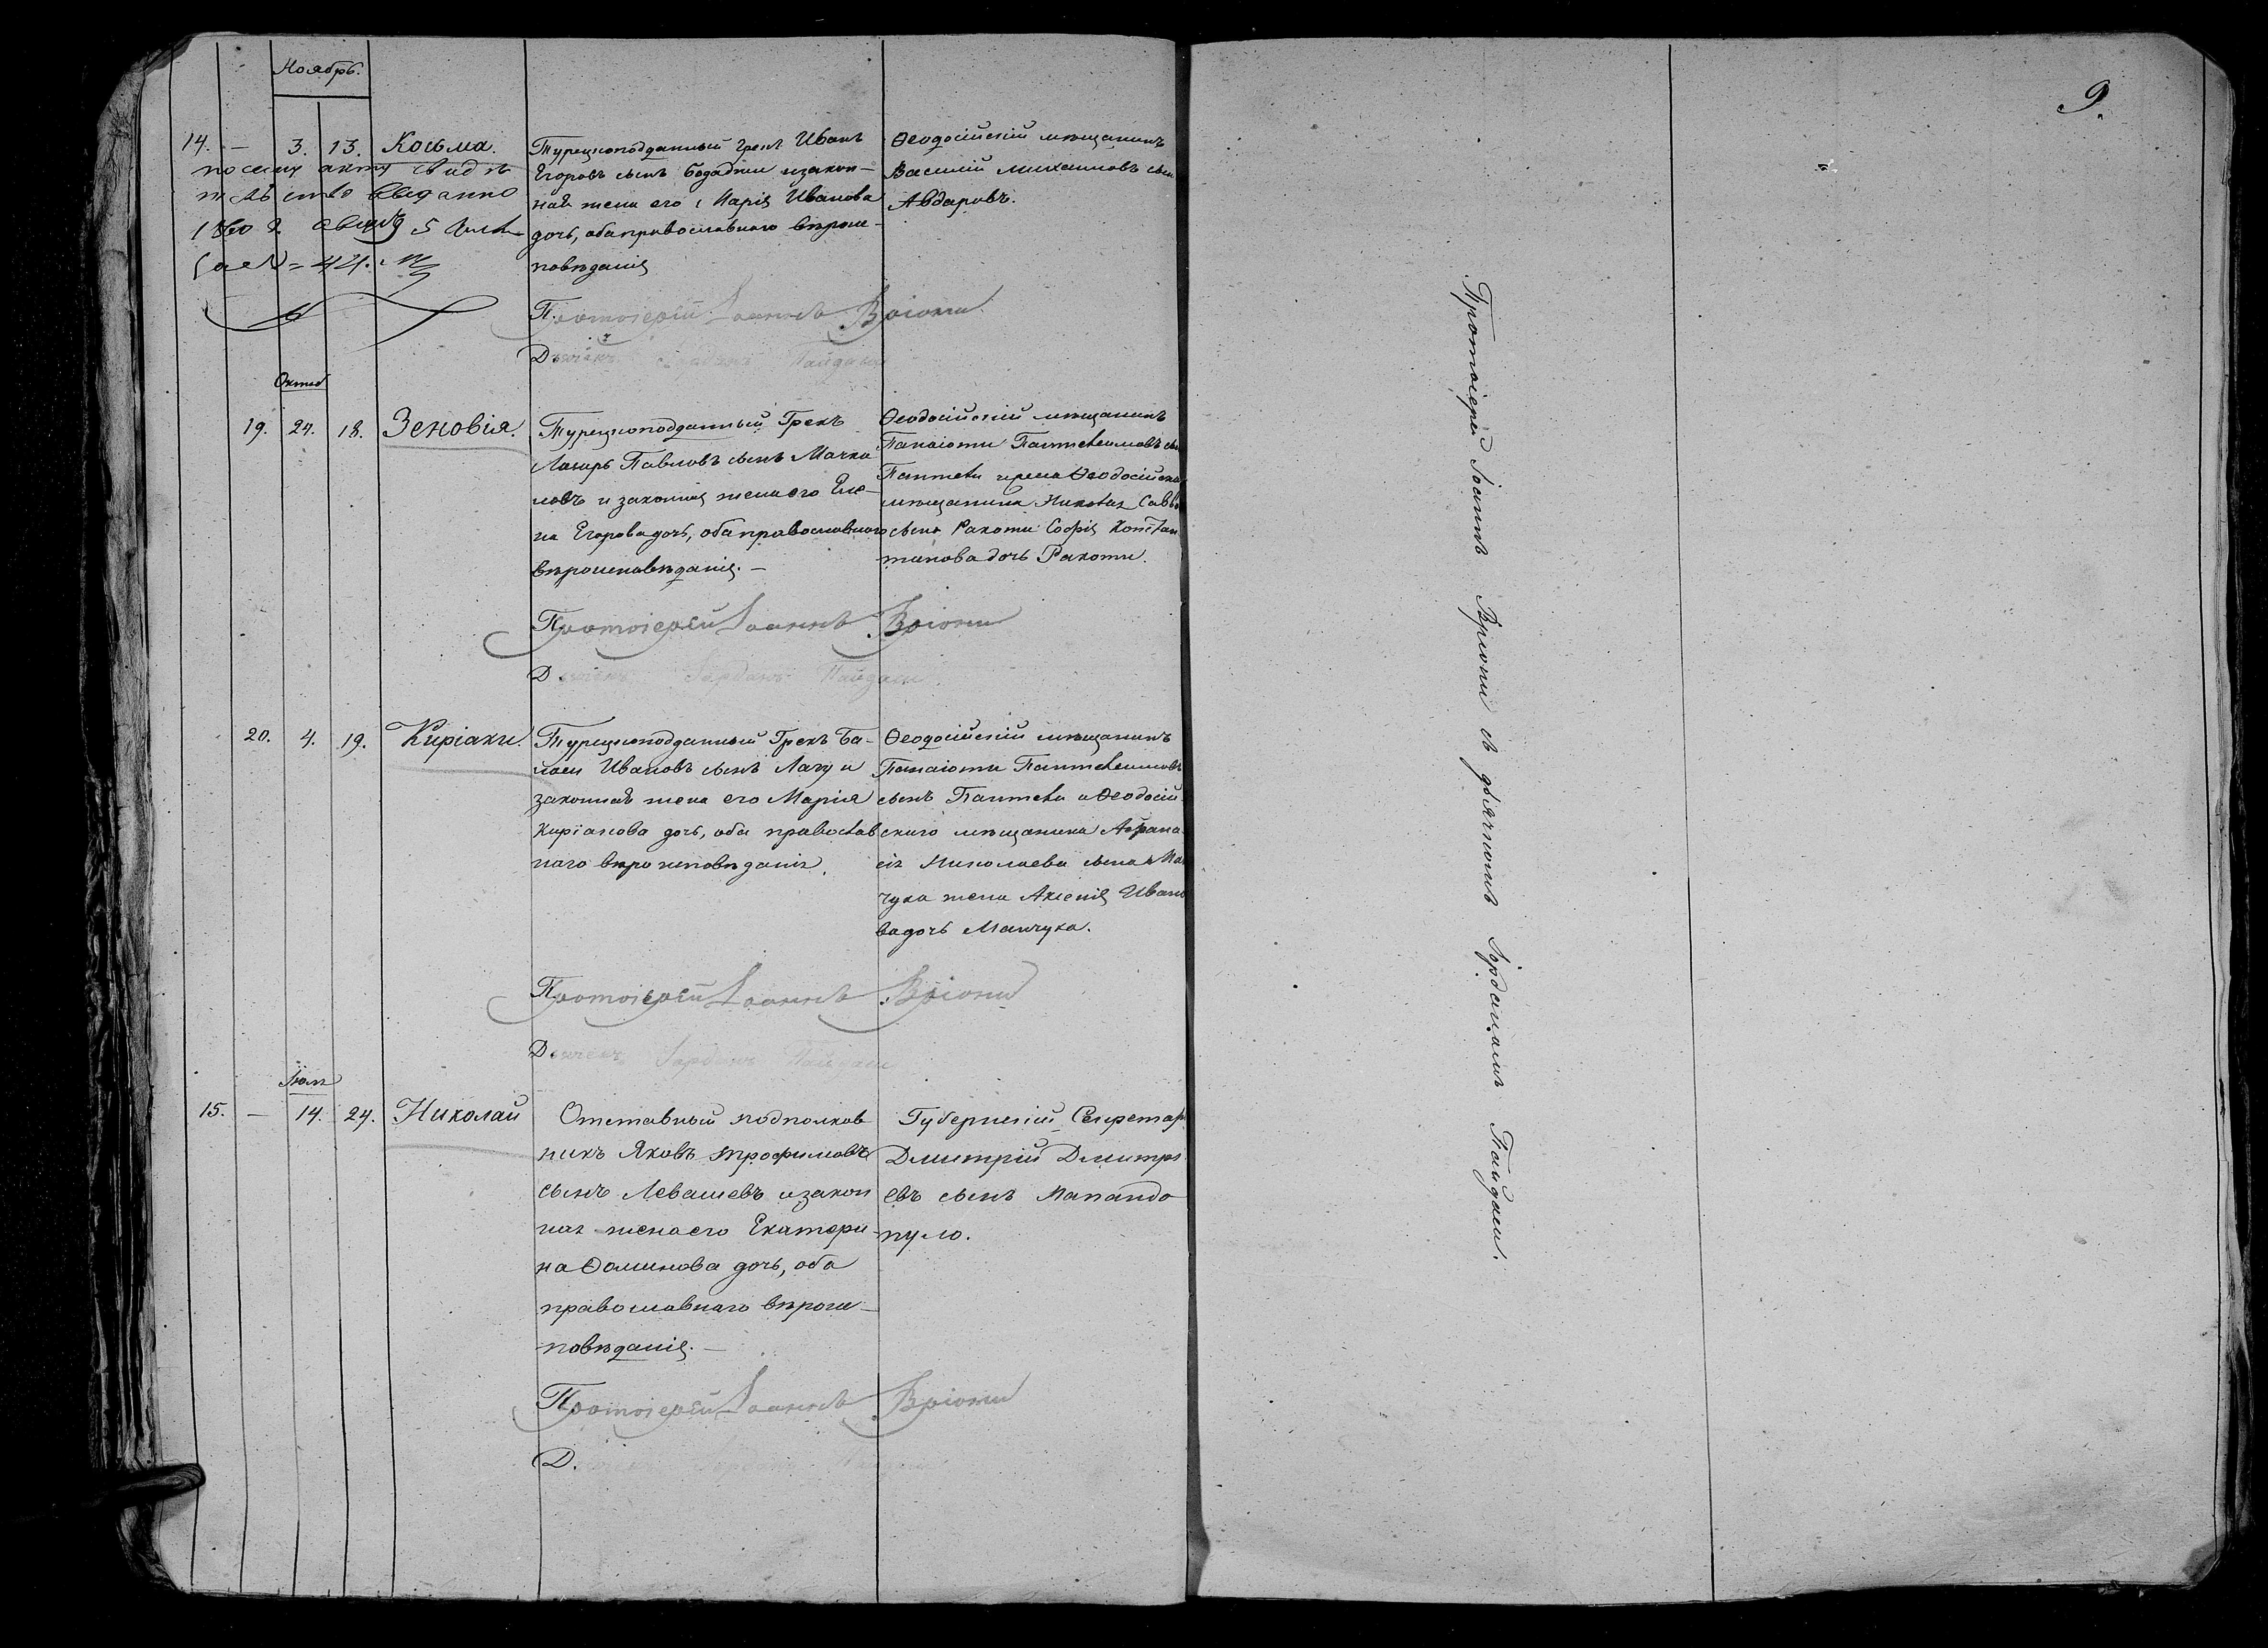 9.
Ноябрь.
14. — 3. 13. Косьма.
по сему акту свидѣ
тельство выдано
1860 г. 5
за № 421.
Турецкоподданный грекъ Иванъ
Егоровъ сынъ Богаджи и закон-
ная жена его Марія Иванова
дочь, оба православнаго вѣроис-
повѣданія
Ѳеодосійскій мѣщанинъ
Василій Михаиловъ сын
Авдаровъ.
Протоіерей Іоаннъ Вріони
Дьячекъ Іорданъ Пайдаси
Октяб
19. 24. 18. Зеновія.
Турецкоподданный Грекъ
Лазарь Павловъ сынъ Мачка
ловъ и законная жена его Еле-
на Егорова дочь, оба православнаго
вѣроисповѣданія. —
Ѳеодосійскій мѣщанинъ
Панаіоти Пантелеимовъ сын
Пантели и жена Ѳеодосійска
мѣщанина Николая Савво
сына Ракоти Софія Констан
тинова дочь Ракоти.
Протоіерей Іоаннъ Вріони
Дьячекъ Іорданъ Пайдаси
20. 4. 19. Киріаки.
Турецкоподданный Грекъ Ба-
ласи Ивановъ сынъ Лазу и
законная жена его Марія
Киріакова дочь, оба православ
наго вѣроисповѣданія.
Ѳеодосійскій мѣщанинъ
Панаіоти Пантелеимовъ
сынъ Пантели и Ѳеодосій
скаго мѣщанина Афана
сія Николаева сына Ма
чука жена Аксенія Ивано
ва дочь Манчука.
Протоіерей Іоаннъ Вріони
Дьячекъ Іорданъ Пайдаси
15. — 14. 24. Николай
Отставный подполков
никъ Яковъ Трофимовъ
сынъ Левашевъ и закон
ная жена его Екатери-
на Ѳоминова дочь, оба
православнаго вѣроис-
повѣданія. —
Губернскій Секретар
Дмитрій Дмитрі
евъ сынъ Папандо
пуло.
Протоіерей Іоаннъ Вріони
Д.
Протоіерей Іоаннъ Вріони съ дьячкомъ Іорданомъ Пайдаси.